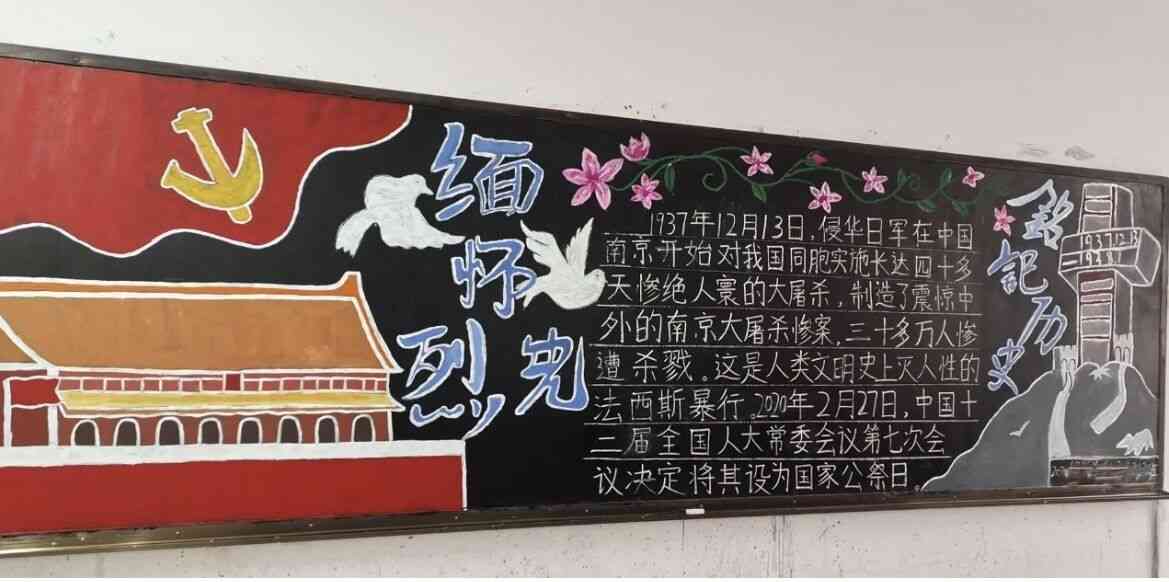 缅怀
先烈
1937年12月13日，侵华日军在中国
南京开始对我国同胞实施长达四十多
天惨绝人寰的大屠杀，制造了震惊中
外的南京大屠杀惨案，三十多万人惨
遭杀戮。这是人类文明史上灭人性的
法西斯暴行。2020年2月27日，中国十
三届全国人大常委会议第七次会
议决定将其设为国家公祭日。
铭记历史
1937.12.13